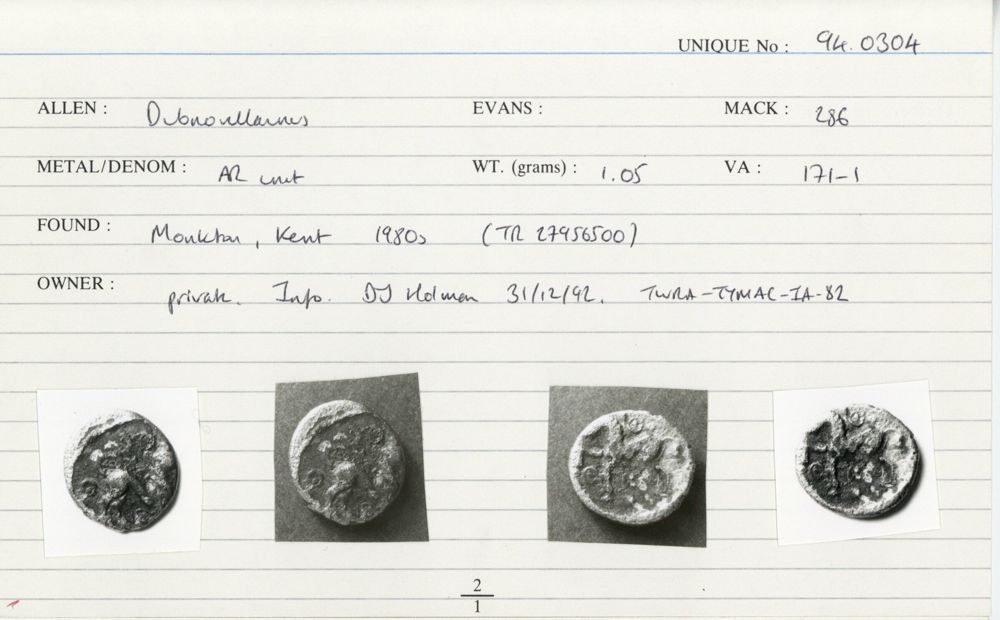 UNIQUE No : 94.0304
ALLEN : Dubnovellaunus EVANS : MACK : 286
METAL/DENOM : AR unit WT. (grams) : 1.05 VA : 171-1
FOUND : Monkton, Kent 1980s (TR 27956500)
OWNER : private. Info. DJ Holman 31/12/92. TWRA-TYMAC-IA-82
2
1